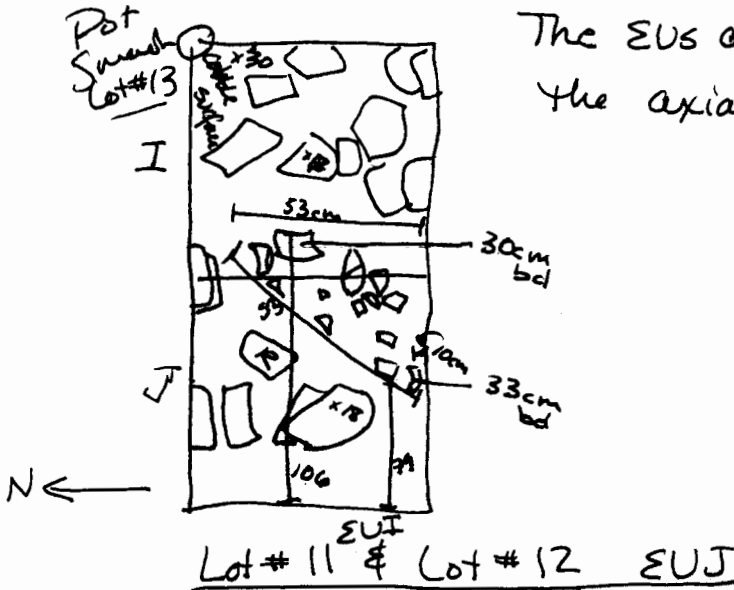 Pot
Smash
Lot#13
The EUs
the axia
cobble
surface
x30
I
53cm
30cm
bd
53
10cm
J
x18
33cm
bd
106
N
EUI
Lot # 11 & Lot # 12 EUJ